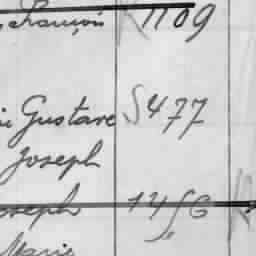 François 1109
Gustave 5477
Joseph
Joseph 1456
Marie